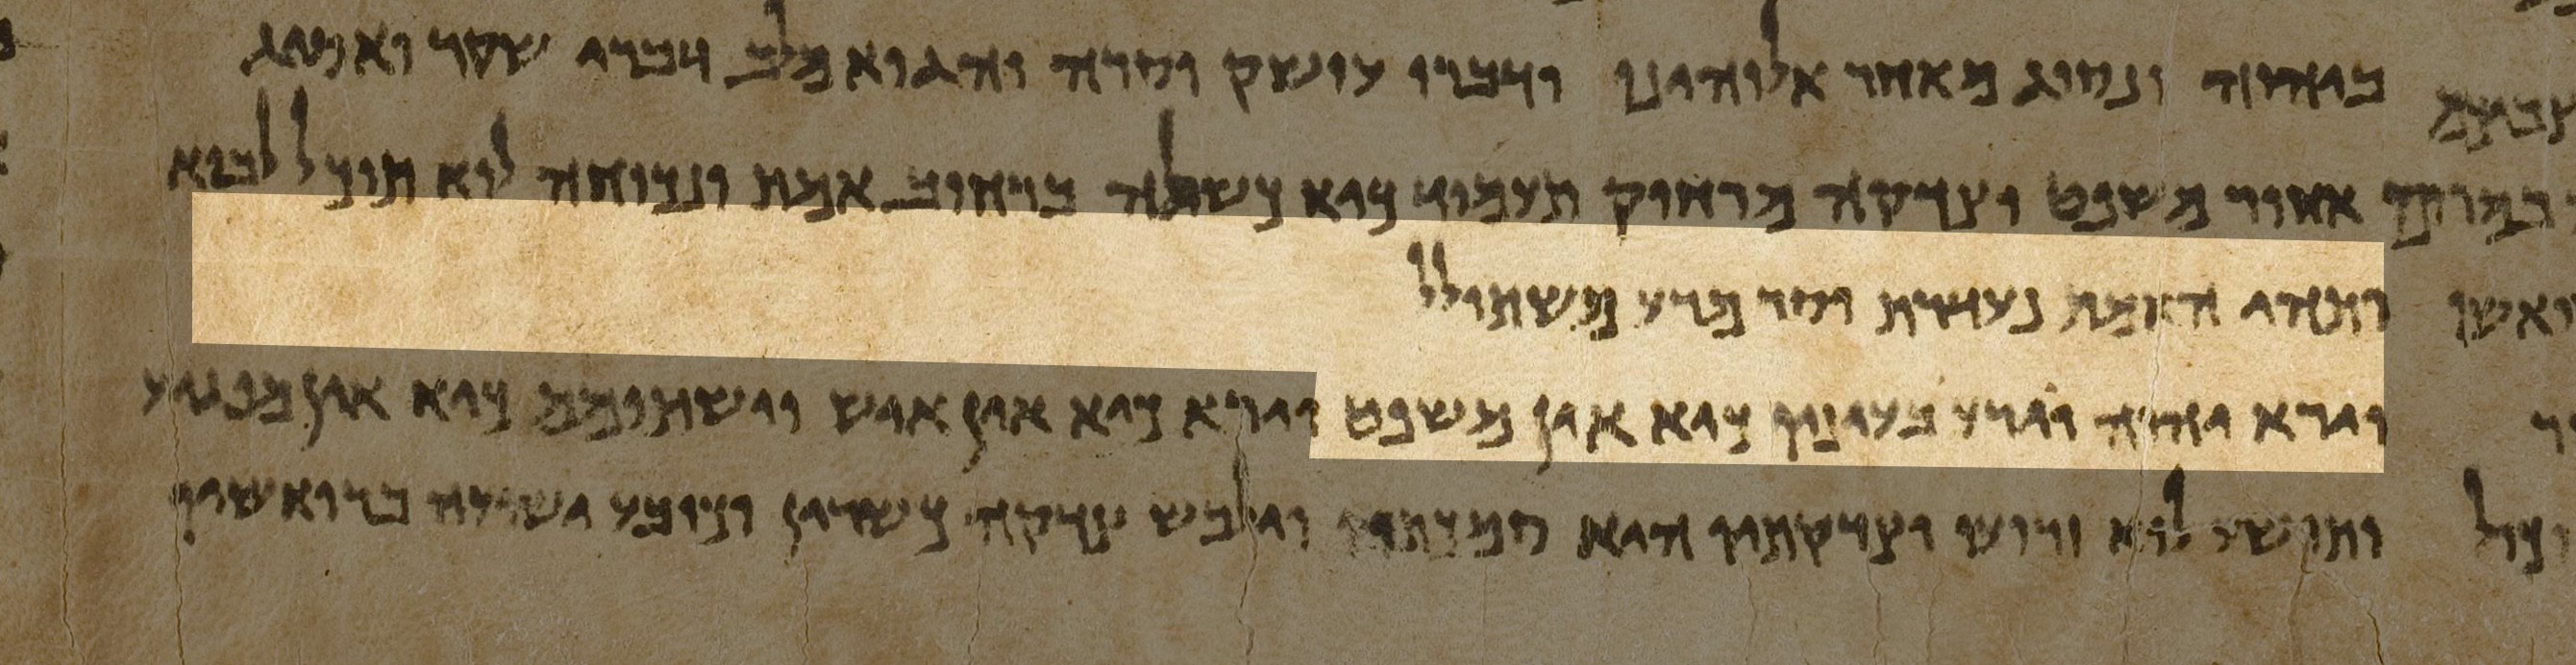 ביהוה ונסוג מאחר אלוהינו ודברו עושק וסרה והגוא מלב דברי שקר ואסיג
אחור משפט וצדקה מרחוק תעמוד כיא כשלה ברחוב אמת ונכוחה לוא תוכל לבוא
ותהי האמת נעדרת וסר מרע משתולל
וירא יהוה וירע בעיניו כיא אין משפט וירא כיא אין איש וישתומם כיא אין מפגיע
ותושע לוא זרועו וצדקתיו היא סמכתהו וילבש צדקה כשריון וכובע ישועה ברואשיו